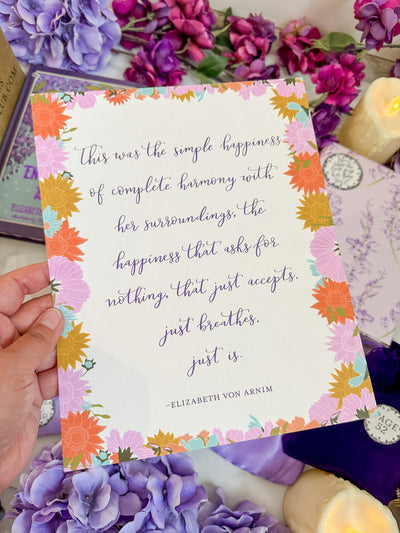 This was the simple happiness
of complete harmony with
her surroundings, the
happiness that asks for
nothing, that just accepts,
just breathes,
just is.
-ELIZABETH VON ARNIM
ELIZABETH
PAGE
52